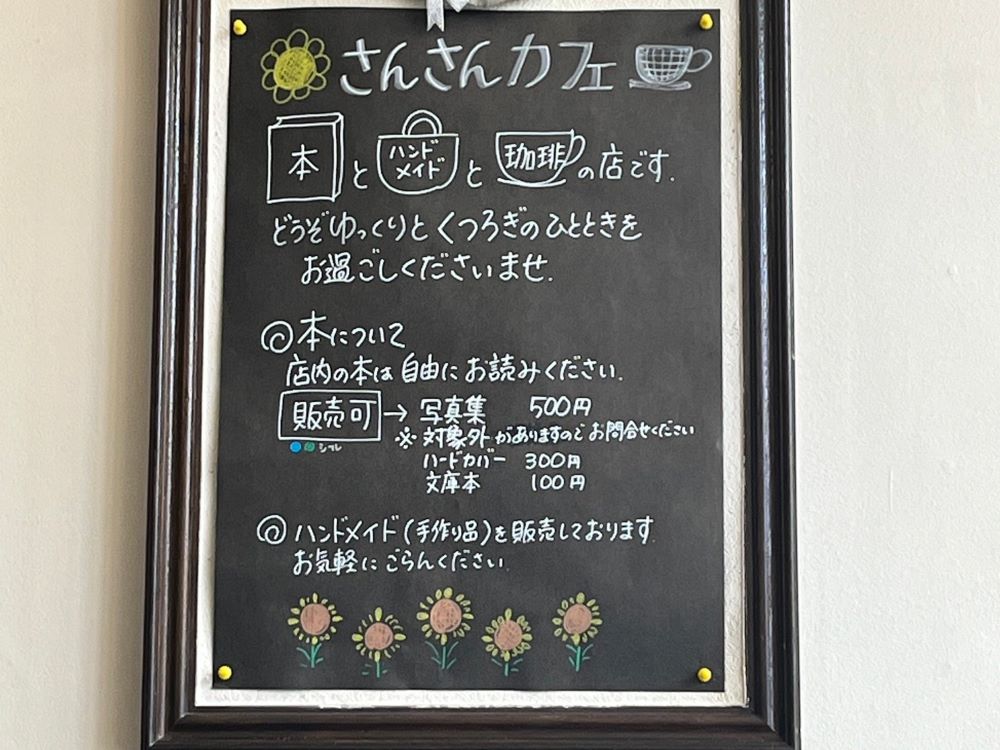 さんさんカフェ
本とハンドメイドと珈琲の店です.
どうぞゆっくりとくつろぎのひとときを
お過ごしくださいませ.
◎本について
店内の本は自由にお読みください.
販売可→写真集 500円
※対象外がありますのでお問合せください
シール
ハードカバー 300円
文庫本 100円
◎ハンドメイド(手作り品)を販売しております
お気軽にごらんください.